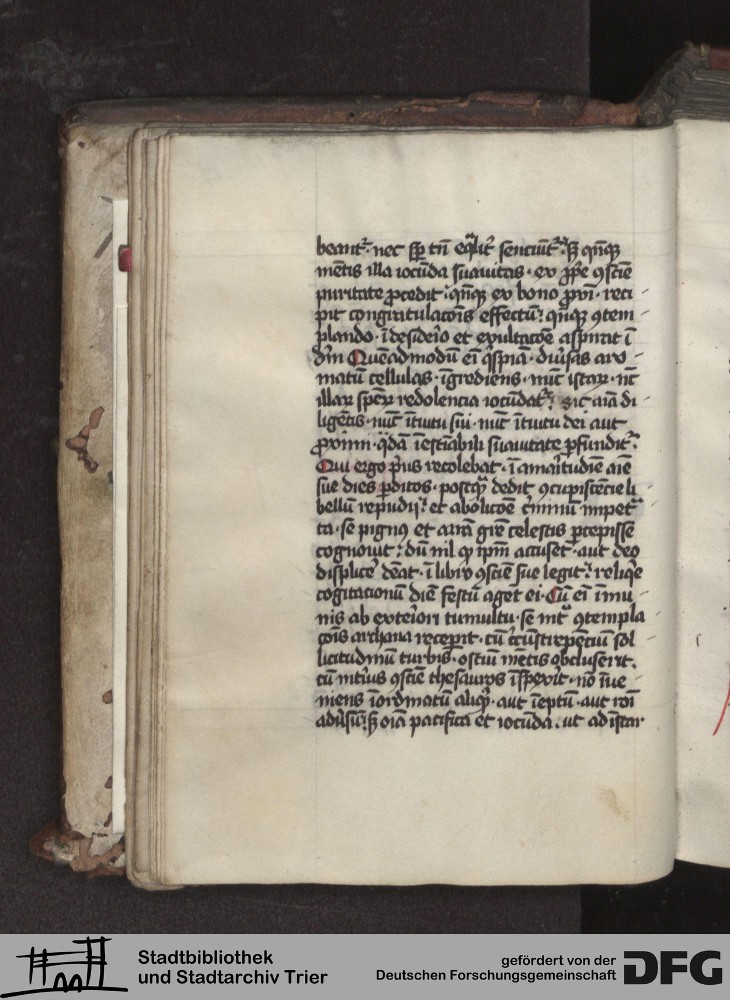 beant᷑. nec sp̄ tn̄ eq̄lit᷑ senciūt᷑. sꝫ qn̄qꝫ
mētis illa iocūda suauitas. ex ꝓpe ꝯsciē
puritate ꝓcedit. qn̄qꝫ ex bono ꝓxī. reci
pit congratulacōis effectū. qn̄qꝫ ꝯtem
plando. ī desiderio et exultacōe aspirat ī
dm̄ Quēadmodū em̄ qͥspiā. diūsas aro
matū cellulas. īgrediens. nūc istaꝝ. nc̄
illaꝝ speꝝ redolencia iocūdat᷑. Sic aīa di
ligētis. nūc ītuitu sui. nūc ītuitu dei aut
ꝓximi. qͣdā īestīabili suauitate ꝑfundit᷑.
Qui ergo pͥus recolebat. ī amaͥtudīe aīe
sue dies ꝑditos. postqͣ dedit ꝯcupiscēcie li
bellū repudij. et abolicōe cͥminū impetͣ
ta. se pignꝯ et arrā grē celestis ꝑcepisse
cognouit. dū nil qͦ ip̄m accuset. aut deo
displicē dēat. ī libro ꝯsciē sue legit. reliqͥe
cogitacionū diē festū aget ei. Cū em̄ imu
nis ab exteriori tumultu. se int͛ ꝯtempla
cōis archana receperit. cū cͥcūstrepenciū sol
licitudinū turbis. ostiū mētis obcluserit.
cū intiꝰ ꝯsciē thesauros īspexit. nō īue
niens īordinatū aliqͥd. aut īeptū. aut rōi
aduͥsū. sꝫ oīa pacifica et iocūda. ut ad īstar
Stadtbibliothek
und Stadtarchiv Trier
gefördert von der
Deutschen Forschungsgemeinschaft
DFG